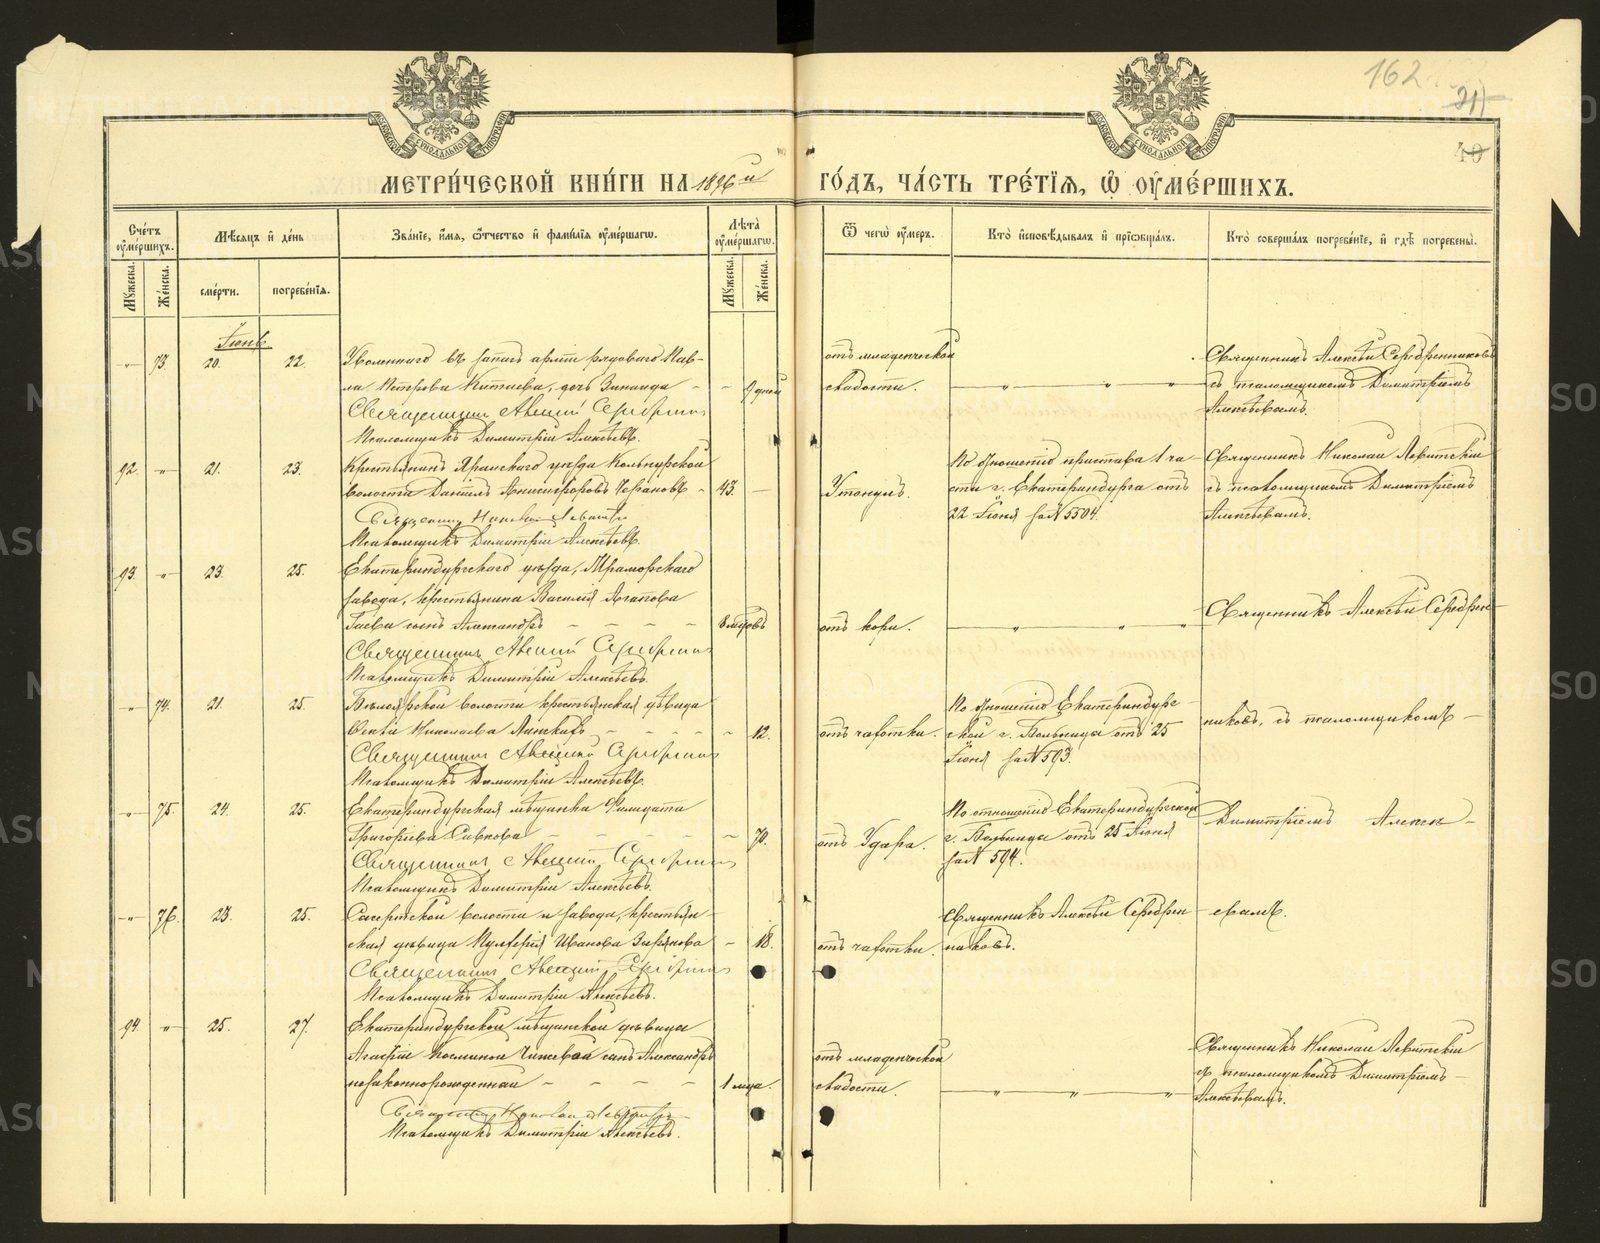 162
40
МЕТРИ́ЧЕСКОЙ КНИ́ГИ НА 1896 й ГО́ДЪ, ЧА́СТЬ ТРЕ́ТІЯ, Ѿ ОУМЕ́РШИХЪ.
Сче́тъ оумершихъ.
Мѣ́сяцъ и де́нь
Зва́ніе, и́мя, о́тчество и фами́лія оуме́ршагѡ.
Лѣта̀ оуме́ршагѡ.
Ѿ чегѡ̀ оу́меръ.
Кто̀ исповѣ́дывалъ и пріѡбща́лъ.
Кто̀ соверша́лъ погребе́ніе, и гдѣ̀ погребены̀.
Мꙋжеска.
Же́нска.
сме́рти.
погребе́нія.
Мꙋжеска.
Же́нска.
Іюнь
" 73. 20. 22. Уволеннаго въ запасъ арміи рядоваго Пав-
ла Петрова Китаева, дочь Зинаида - - 9 дней
Священникъ Алексій Серебрениковъ
Псаломщикъ Димитрій Алексѣевъ.
отъ младенческой
слабости. " " "
Священникъ Алексѣй Серебренниковъ
съ псаломщикомъ Димитріемъ
Алексѣевымъ.
92. " 21. 23. Крестьянинъ Яранскаго уѣзда
волости Даніилъ - 43. -
Священникъ Николай Левитскій
Псаломщикъ Димитрій Алексѣевъ.
Утонулъ.
По отношенію пристава 1 ча-
сти г. Екатеринбурга отъ
22 Іюня за № 5504.
Священникъ Николай Левитскій
съ псаломщикомъ Димитріемъ
Алексѣевымъ.
93. " 23. 25. Екатеринбургскаго уѣзда, Мраморскаго
завода, крестьянина Василія Агапова
Гаева сынъ Александръ - - - - 8 мѣсяцовъ
Священникъ Алексій Серебрениковъ
Псаломщикъ Димитрій Алексѣевъ.
отъ кори. " " "
Священникъ Алексѣй Серебрен-
" 74. 21. 25. Бѣлоярской волости крестьянская дѣвица
Николаева - - - - 12.
Священникъ Алексій Серебрениковъ
Псаломщикъ Димитрій Алексѣевъ.
отъ чахотки.
По отношенію Екатеринбург-
ской г. Больницы отъ 25
Іюня за № 593.
никовъ, съ псаломщикомъ -
" 75. 24. 25. Екатеринбургская мѣщанка
Григорьева Савкова - - - - - 70.
Священникъ Алексій Серебрениковъ
Псаломщикъ Димитрій Алексѣевъ.
отъ Удара.
По отношенію Екатеринбургской
г. Больницы отъ 25 Іюня
за № 594.
Димитріемъ Алексѣ-
" 76. 23. 25. Сысертской волости и завода, крестьян-
ская дѣвица Пулхерія Иванова Зырянова - 18.
Священникъ Алексій Серебрениковъ
Псаломщикъ Димитрій Алексѣевъ.
отъ чахотки.
Священникъ Алексѣй Серебрен-
никовъ.
евымъ.
94. " 25. 27. Екатеринбургской мѣщанской дѣвицы
сынъ Александръ
незаконнорожденный - - - - 1 мѣсяца.
Священникъ Николай Левитскій
Псаломщикъ Димитрій Алексѣевъ.
отъ младенческой
слабости. " " "
Священникъ Николай Левитскій
съ псаломщикомъ Димитріемъ
Алексѣевымъ.